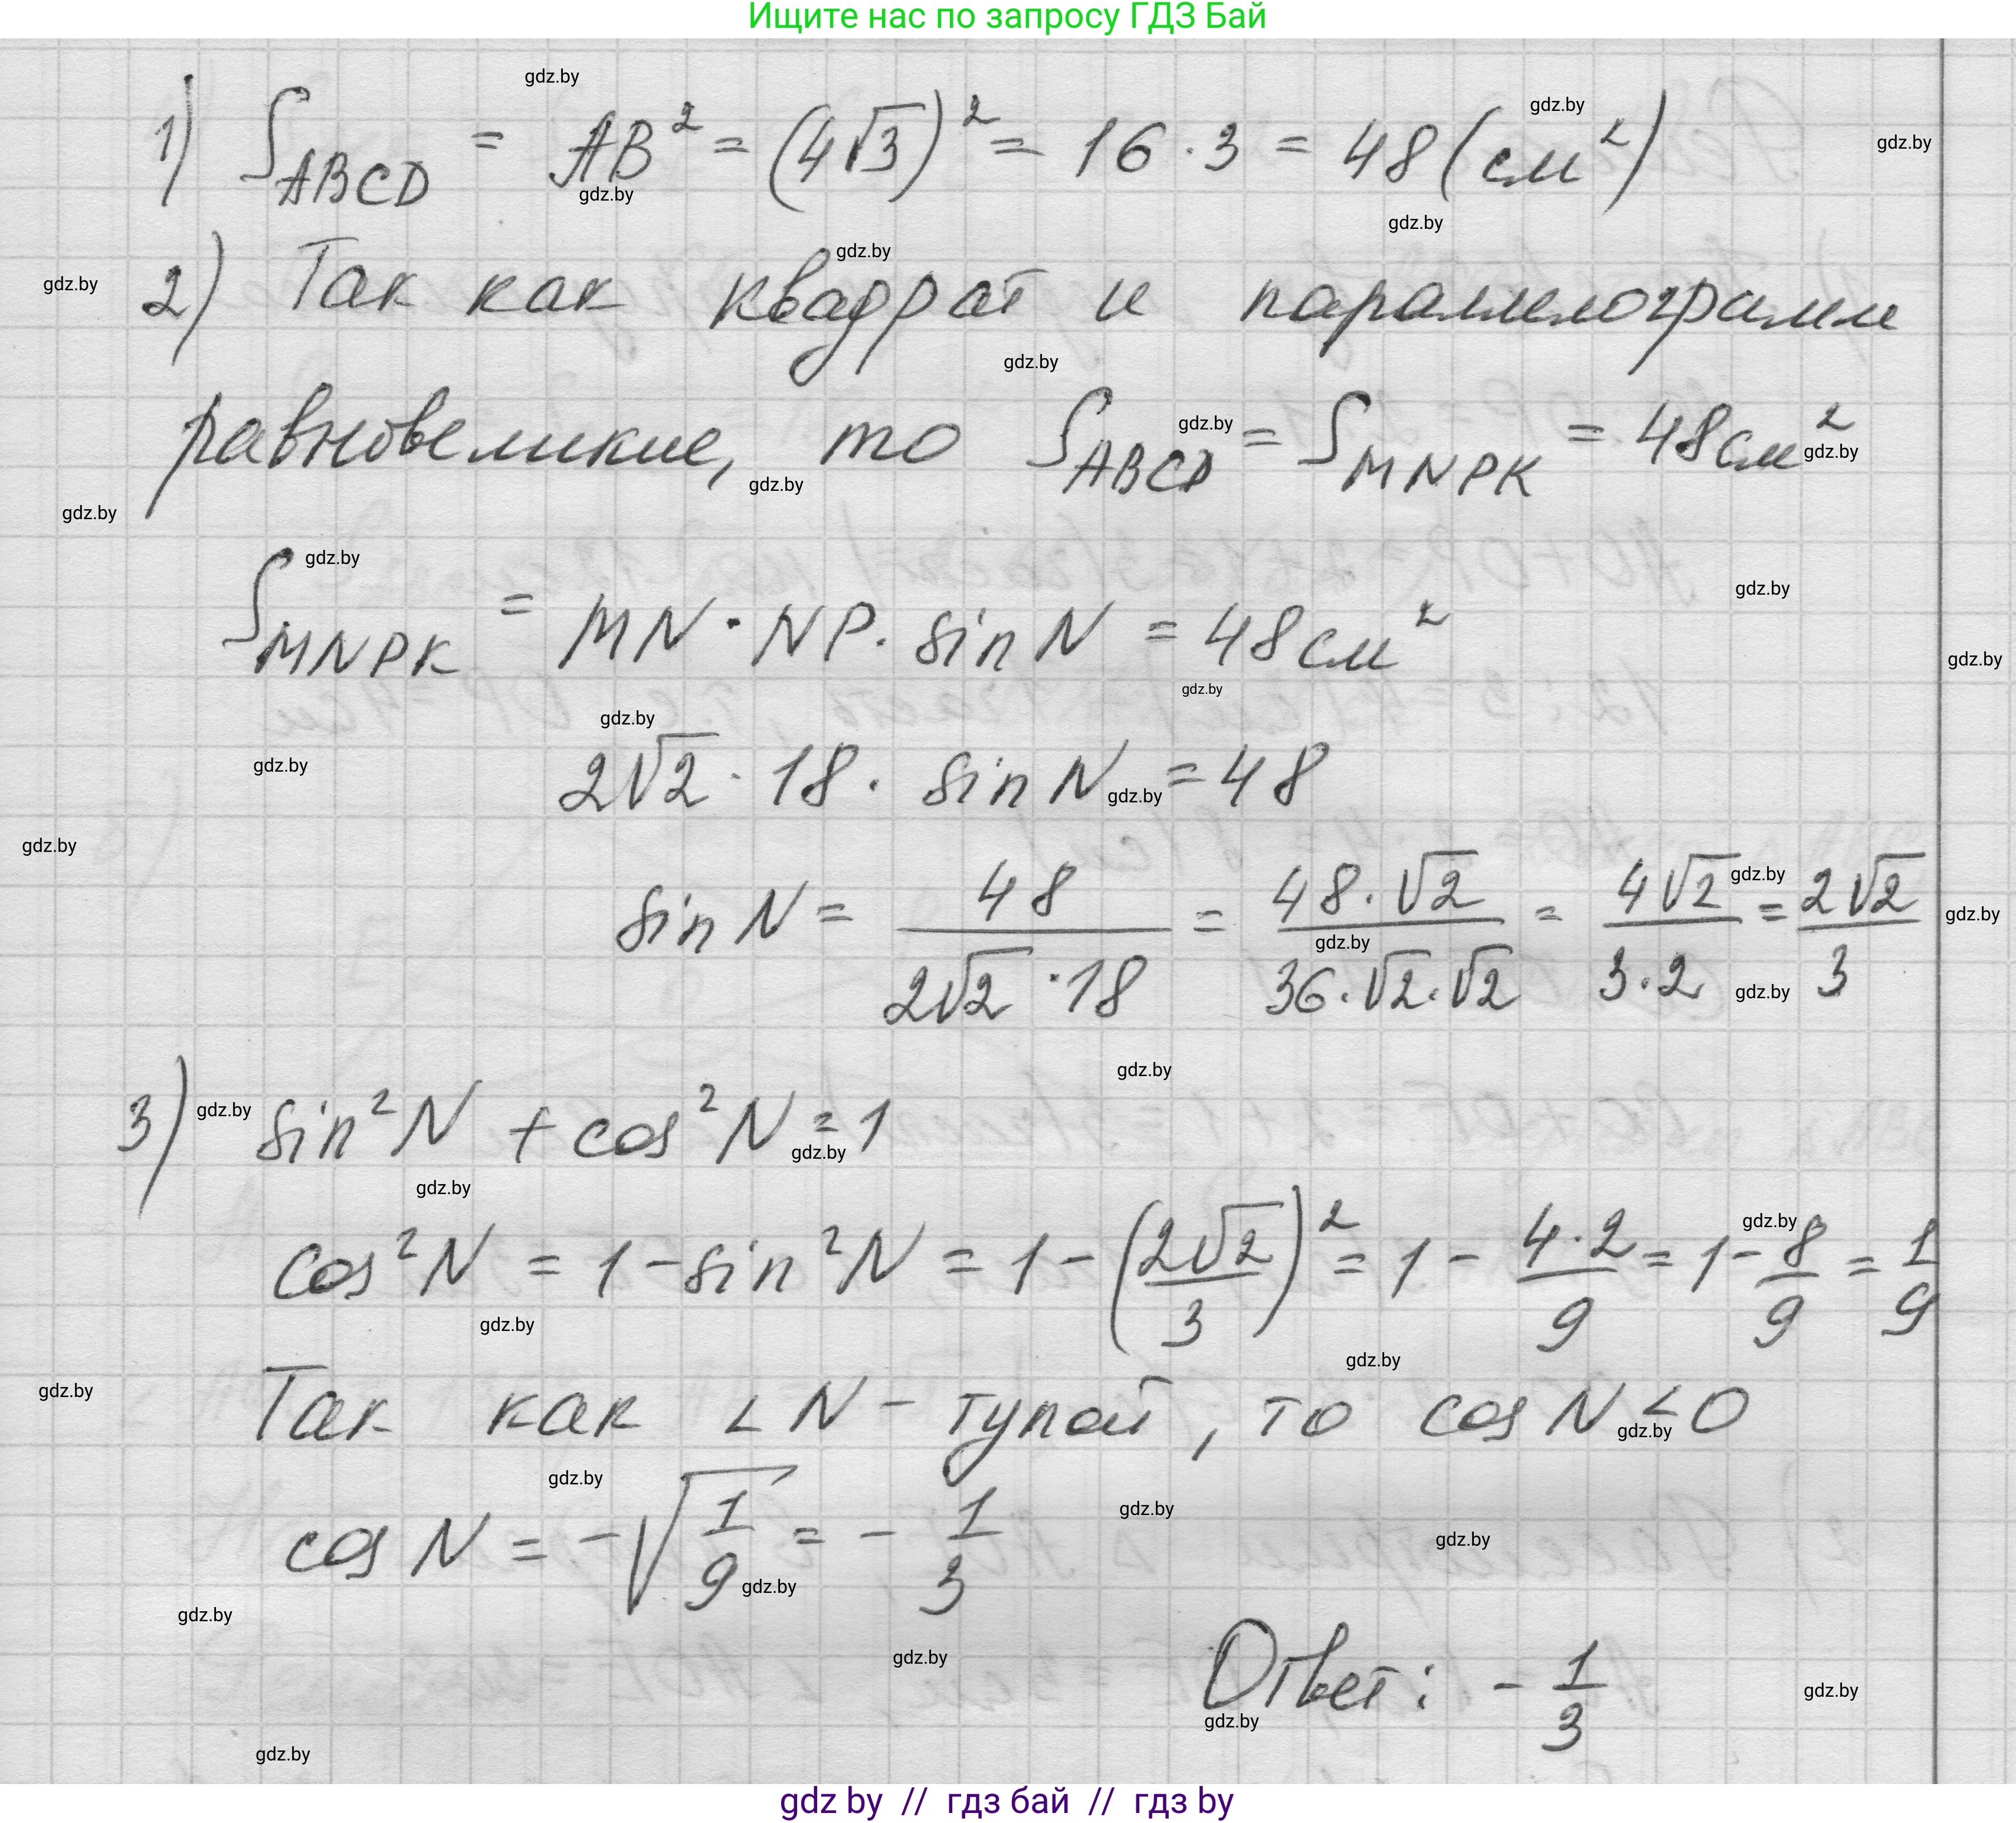 Ищите нас по запросу ГДЗ Бай
1) S_ABCD = AB² = (4√3)² = 16 · 3 = 48 (см²)
2) Так как квадрат и параллелограмм
равновеликие, то S_ABCD = S_MNPK = 48 см²
S_MNPK = MN · NP · sin N = 48 см²
2√2 · 18 · sin N = 48
sin N = 48/(2√2 · 18) = (48 · √2)/(36 · √2 · √2) = 4√2/(3 · 2) = 2√2/3
3) sin²N + cos²N = 1
cos²N = 1 - sin²N = 1 - (2√2/3)² = 1 - (4 · 2)/9 = 1 - 8/9 = 1/9
Так как ∠N - тупой, то cos N < 0
cos N = -√(1/9) = - 1/3
Ответ: - 1/3
gdz by // гдз бай // гдз by